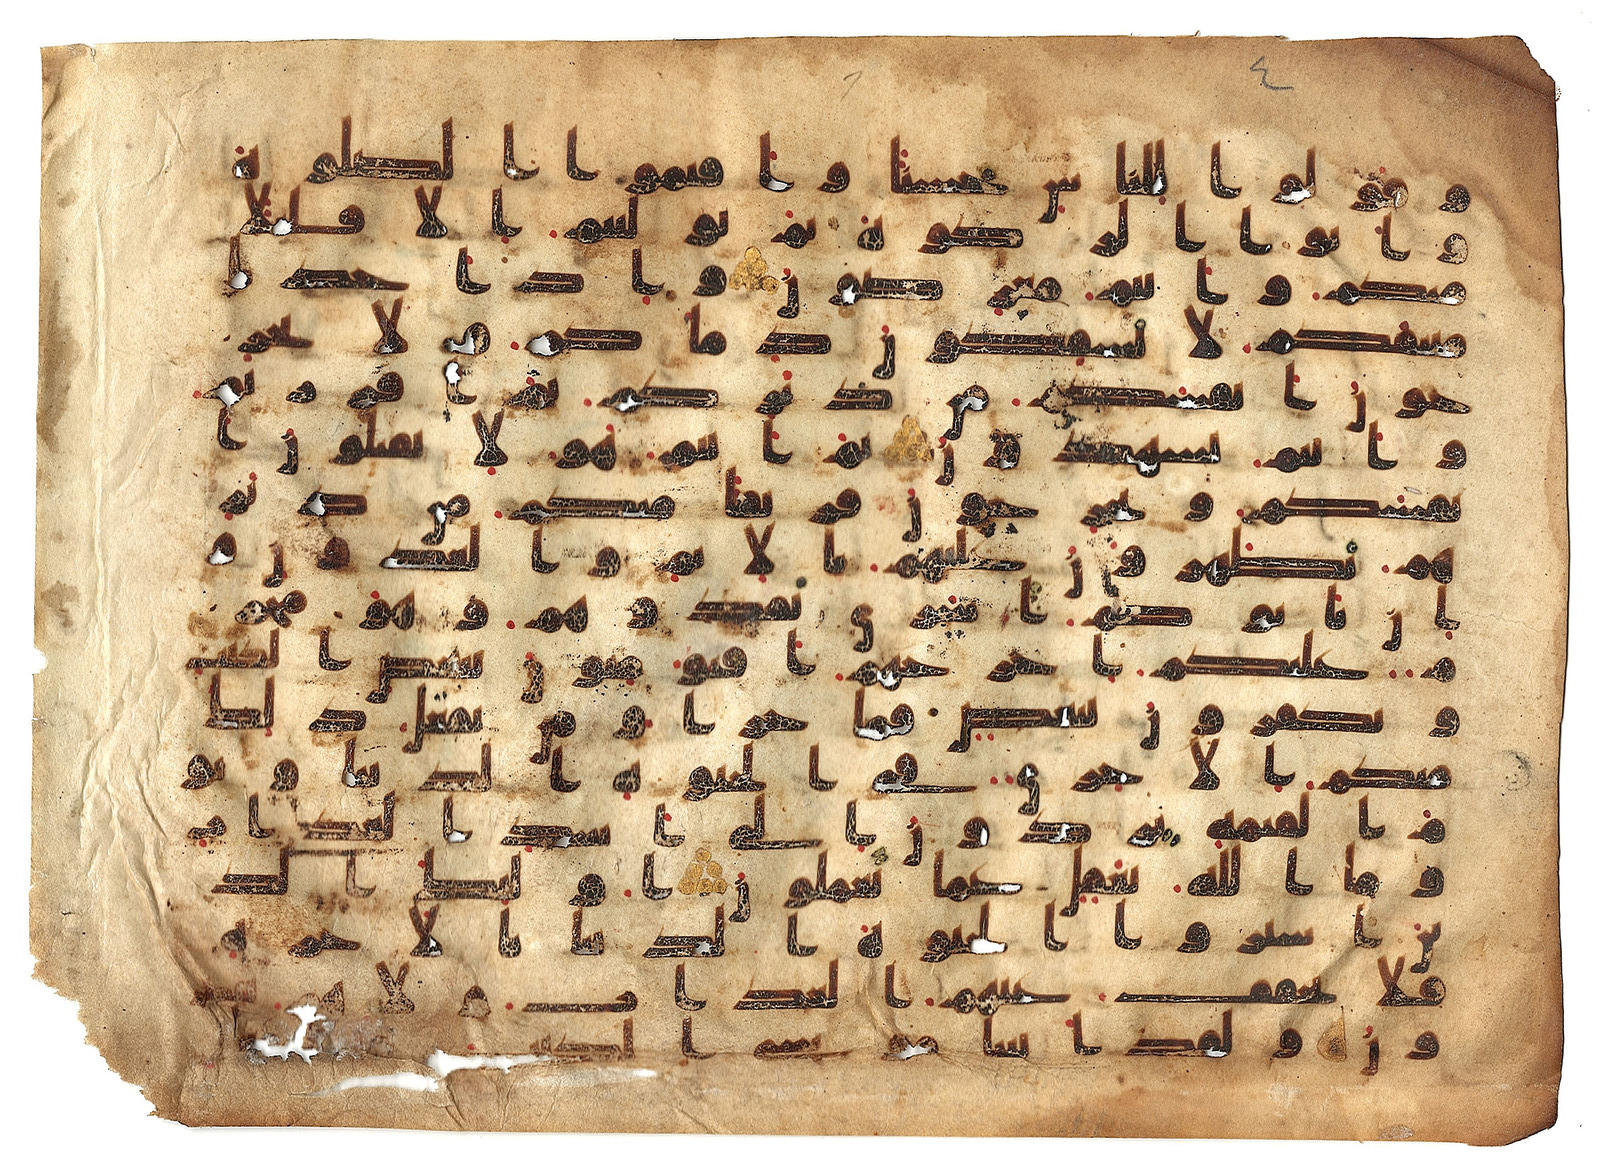 و قولوا للناس حسنا و اقيموا الصلوة
و اتوا الزكوة ثم توليتم الا قليلا
منكم و انتم معرضون و اذ اخذنا
ميثقكم لا تسفكون دماكم و لا تخر
جون انفسكم من ديركم ثم اقررتم
و انتم تشهدون ثم انتم هولا تقتلون ا
نفسكم و تخرجون فريقا منكم من دير
هم تظهرون عليهم بالاثم و العدون و
ان ياتوكم اسرى تفدوهم و هو محر
م عليكم اخراجهم افتومنون ببعض الكتب
و تكفرون ببعض فما جزا من يفعل ذلك
منكم الا خزي في الحيوة الدنيا و يو
م القيمة يردون الى اشد العذاب
و ما الله بغفل عما تعملون اولئك الذ
ين اشتروا الحيوة الدنيا بالاخرة
فلا يخفف عنهم العذاب و لا هم ينصر
ون و لقد اتينا موسى الكتب